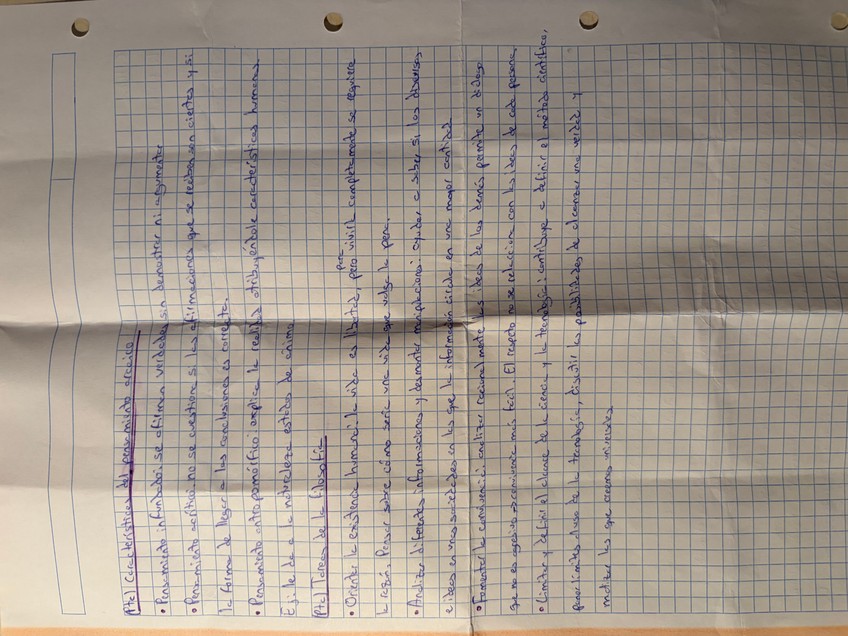 (P+c) Características del pensamiento arcaico
• Pensamiento infundado: se afirman verdades sin demostrar ni argumentar
• Pensamiento acrítico: no se cuestiona si las afirmaciones que se reciben son ciertas y si
la forma de llegar a las conclusiones es correcta.
• Pensamiento antropomórfico: explica la realidad atribuyéndole características humanas.
Ej: le da a la naturaleza estados de ánimo.
(P+c) Tareas de la filosofía
• Orientar la existencia humana: la vida es libertad, pero para vivirla completamente se requiere
la razón. Pensar sobre cómo sería una vida que valga la pena.
• Analizar diferentes informaciones y desmontar manipulaciones: ayudar a saber si los discursos
e ideas en unas sociedades en las que la información circula en una mayor cantidad
• Fomentar la convivencia: analizar racionalmente las ideas de los demás permite un diálogo
que no es agresivo → convivencia más fácil. El respeto no se relaciona con las ideas de cada persona.
• Limitar y definir el alcance de la ciencia y la tecnología: contribuye a definir el método científico,
poner límites al uso de la tecnología, discutir las posibilidades de alcanzar una verdad y
matizar las que creemos